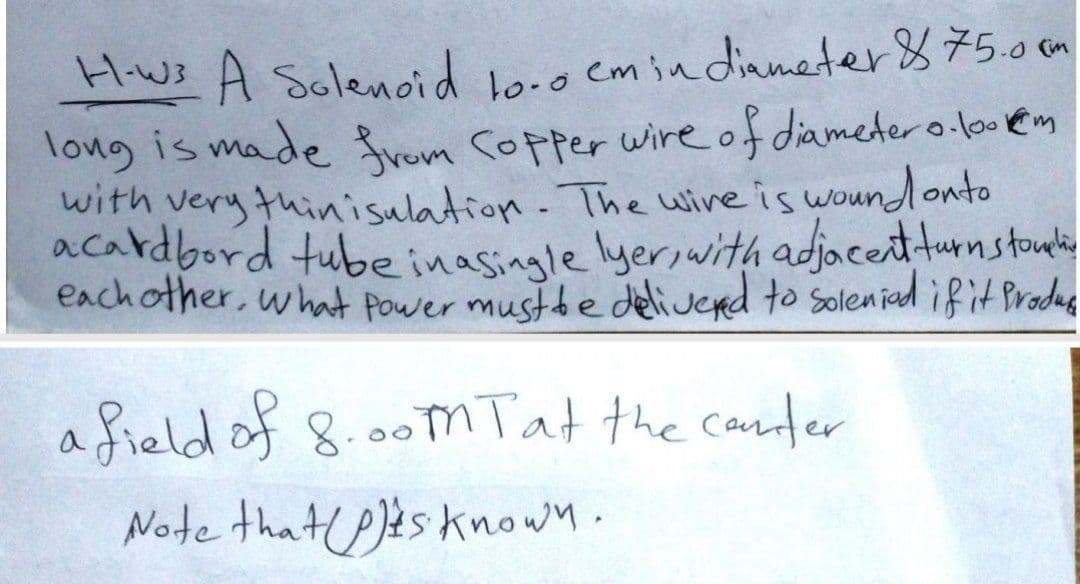 H.W3 A Solenoid 10.0 cm in diameter & 75.0 cm
long is made from Copper wire of diameter 0.100 cm
with very thin isulation. The wire is wound onto
a cardbord tube in a single lyer, with adjacent turns touching
each other. What Power must be deliverd to soleniod if it Produc
a field of 8.00 mT at the center
Note that (ρ) is known.